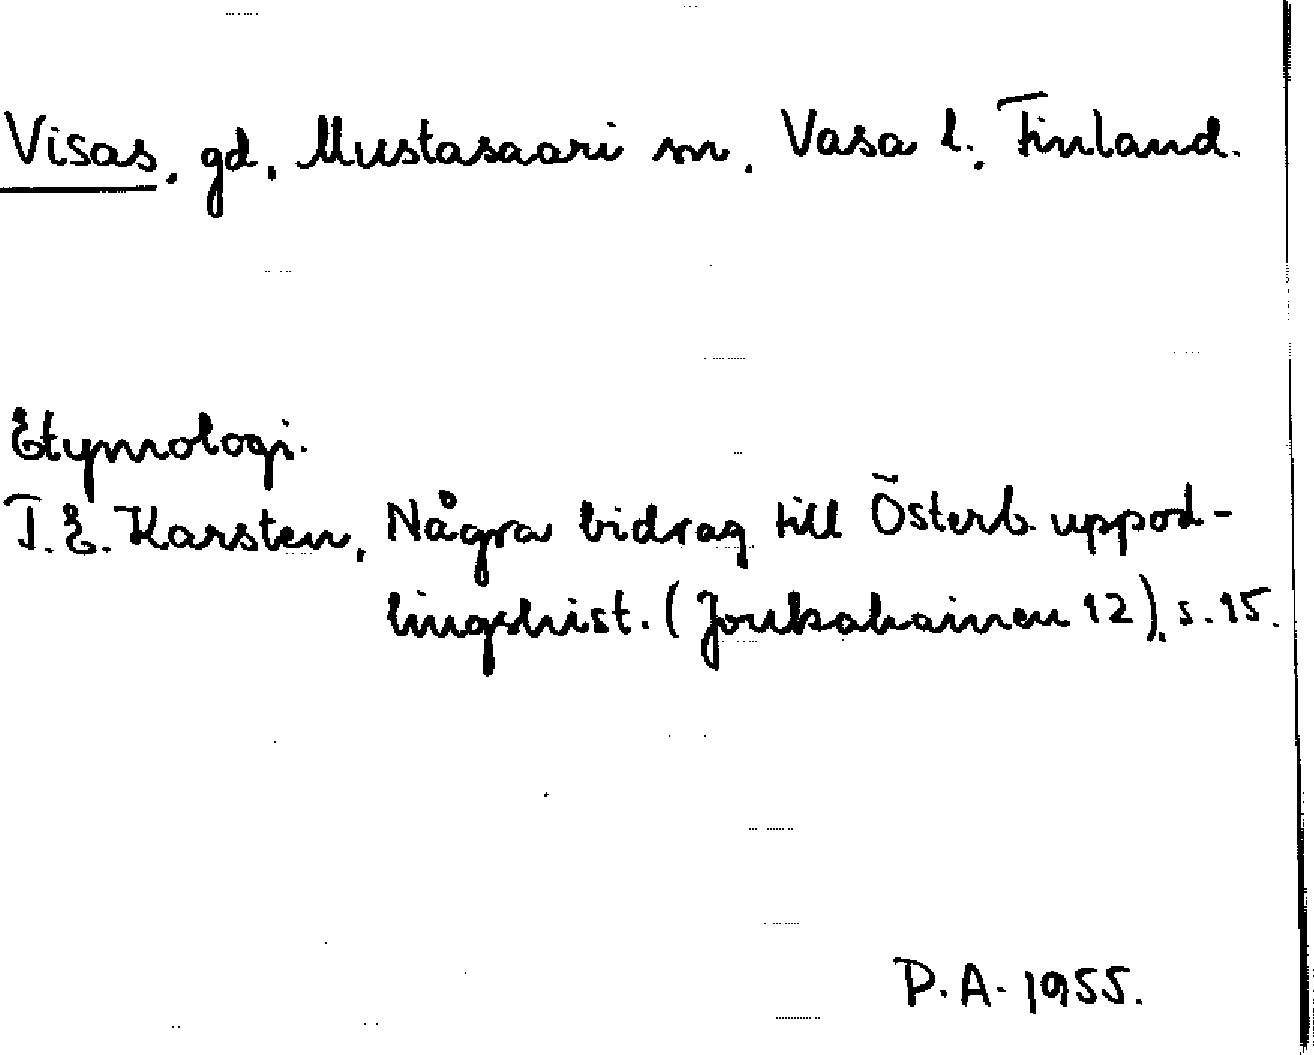 Visas, gd, Mustasaari sn, Vasa l., Finland.
Etymologi.
T. E. Karsten, Några bidrag till Österb. uppod-
lingshist. (Joukahainen 12), s. 15.
P. A. 1955.